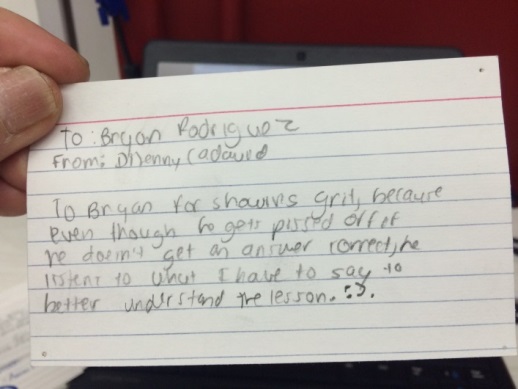 To: Bryan Rodriguez
From: Dijenny Cadavid
To Bryan for showing grit, because
Even though he gets pissed off if
he doesn't get an answer correct, he
listens to what I have to say to
better understand the lesson. :).